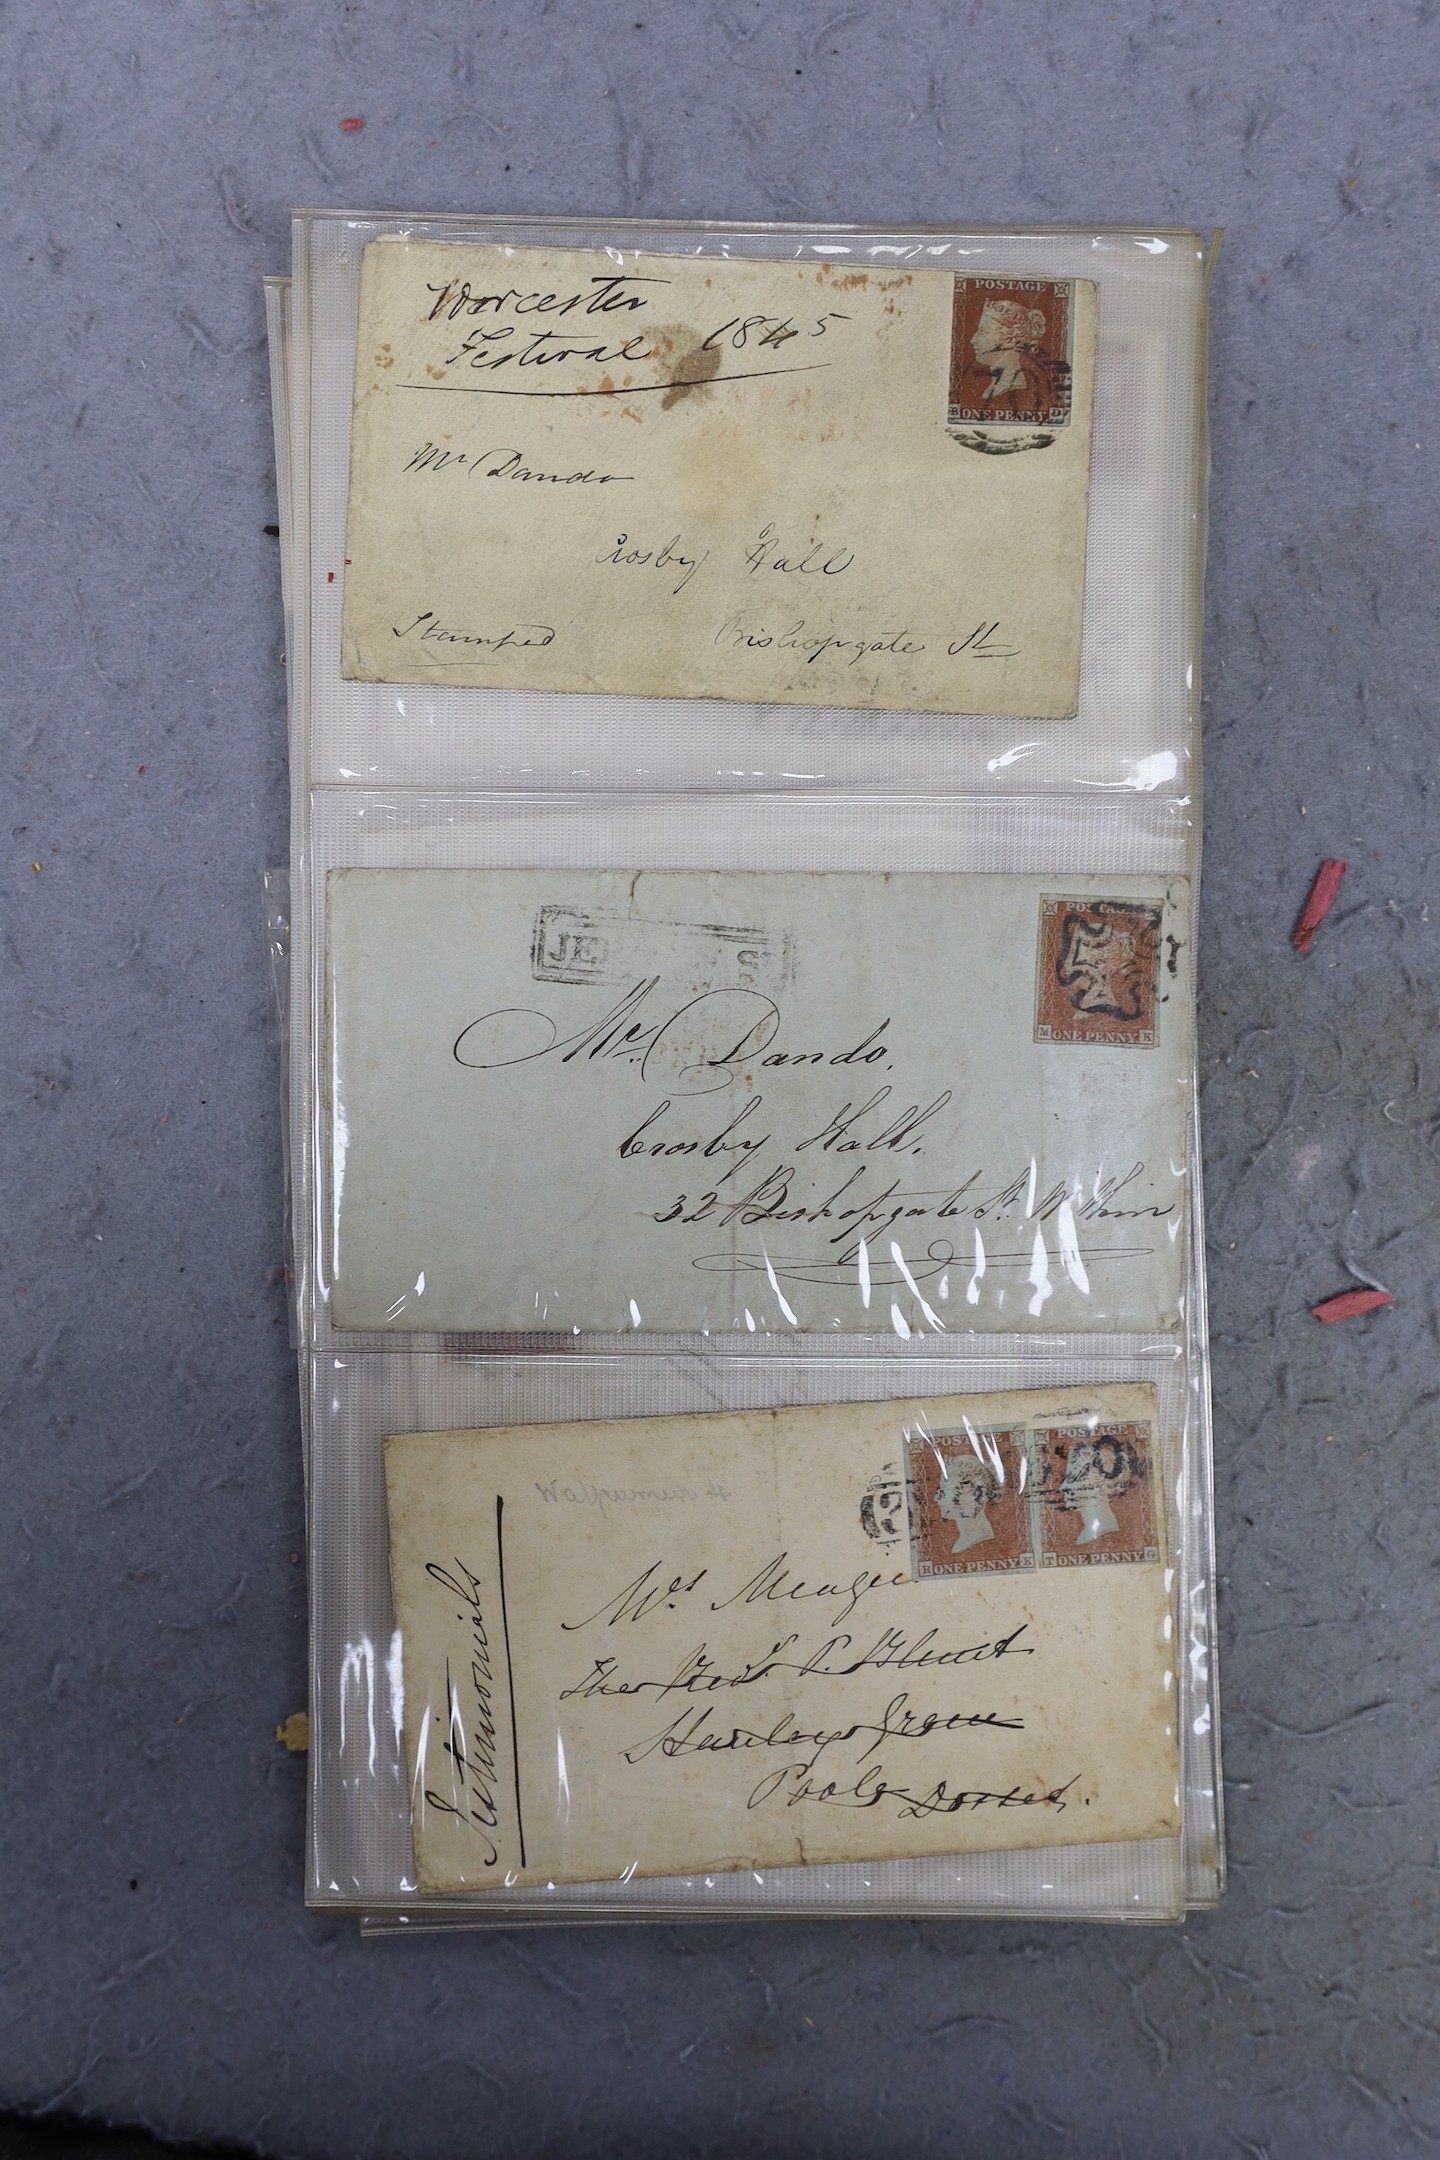 Worcester
Festival 1845
POSTAGE
B ONE PENNY D
Mr Dando
Crosby Hall
Stamped
Bishopgate St
JE S
POSTAGE
M ONE PENNY K
Mr. Dando,
Crosby Hall,
32 Bishopgate St. Within
POSTAGE
R ONE PENNY K
POSTAGE
T ONE PENNY G
Testimonials
The Revd. P. Blunt
Green
Poole Dorset.